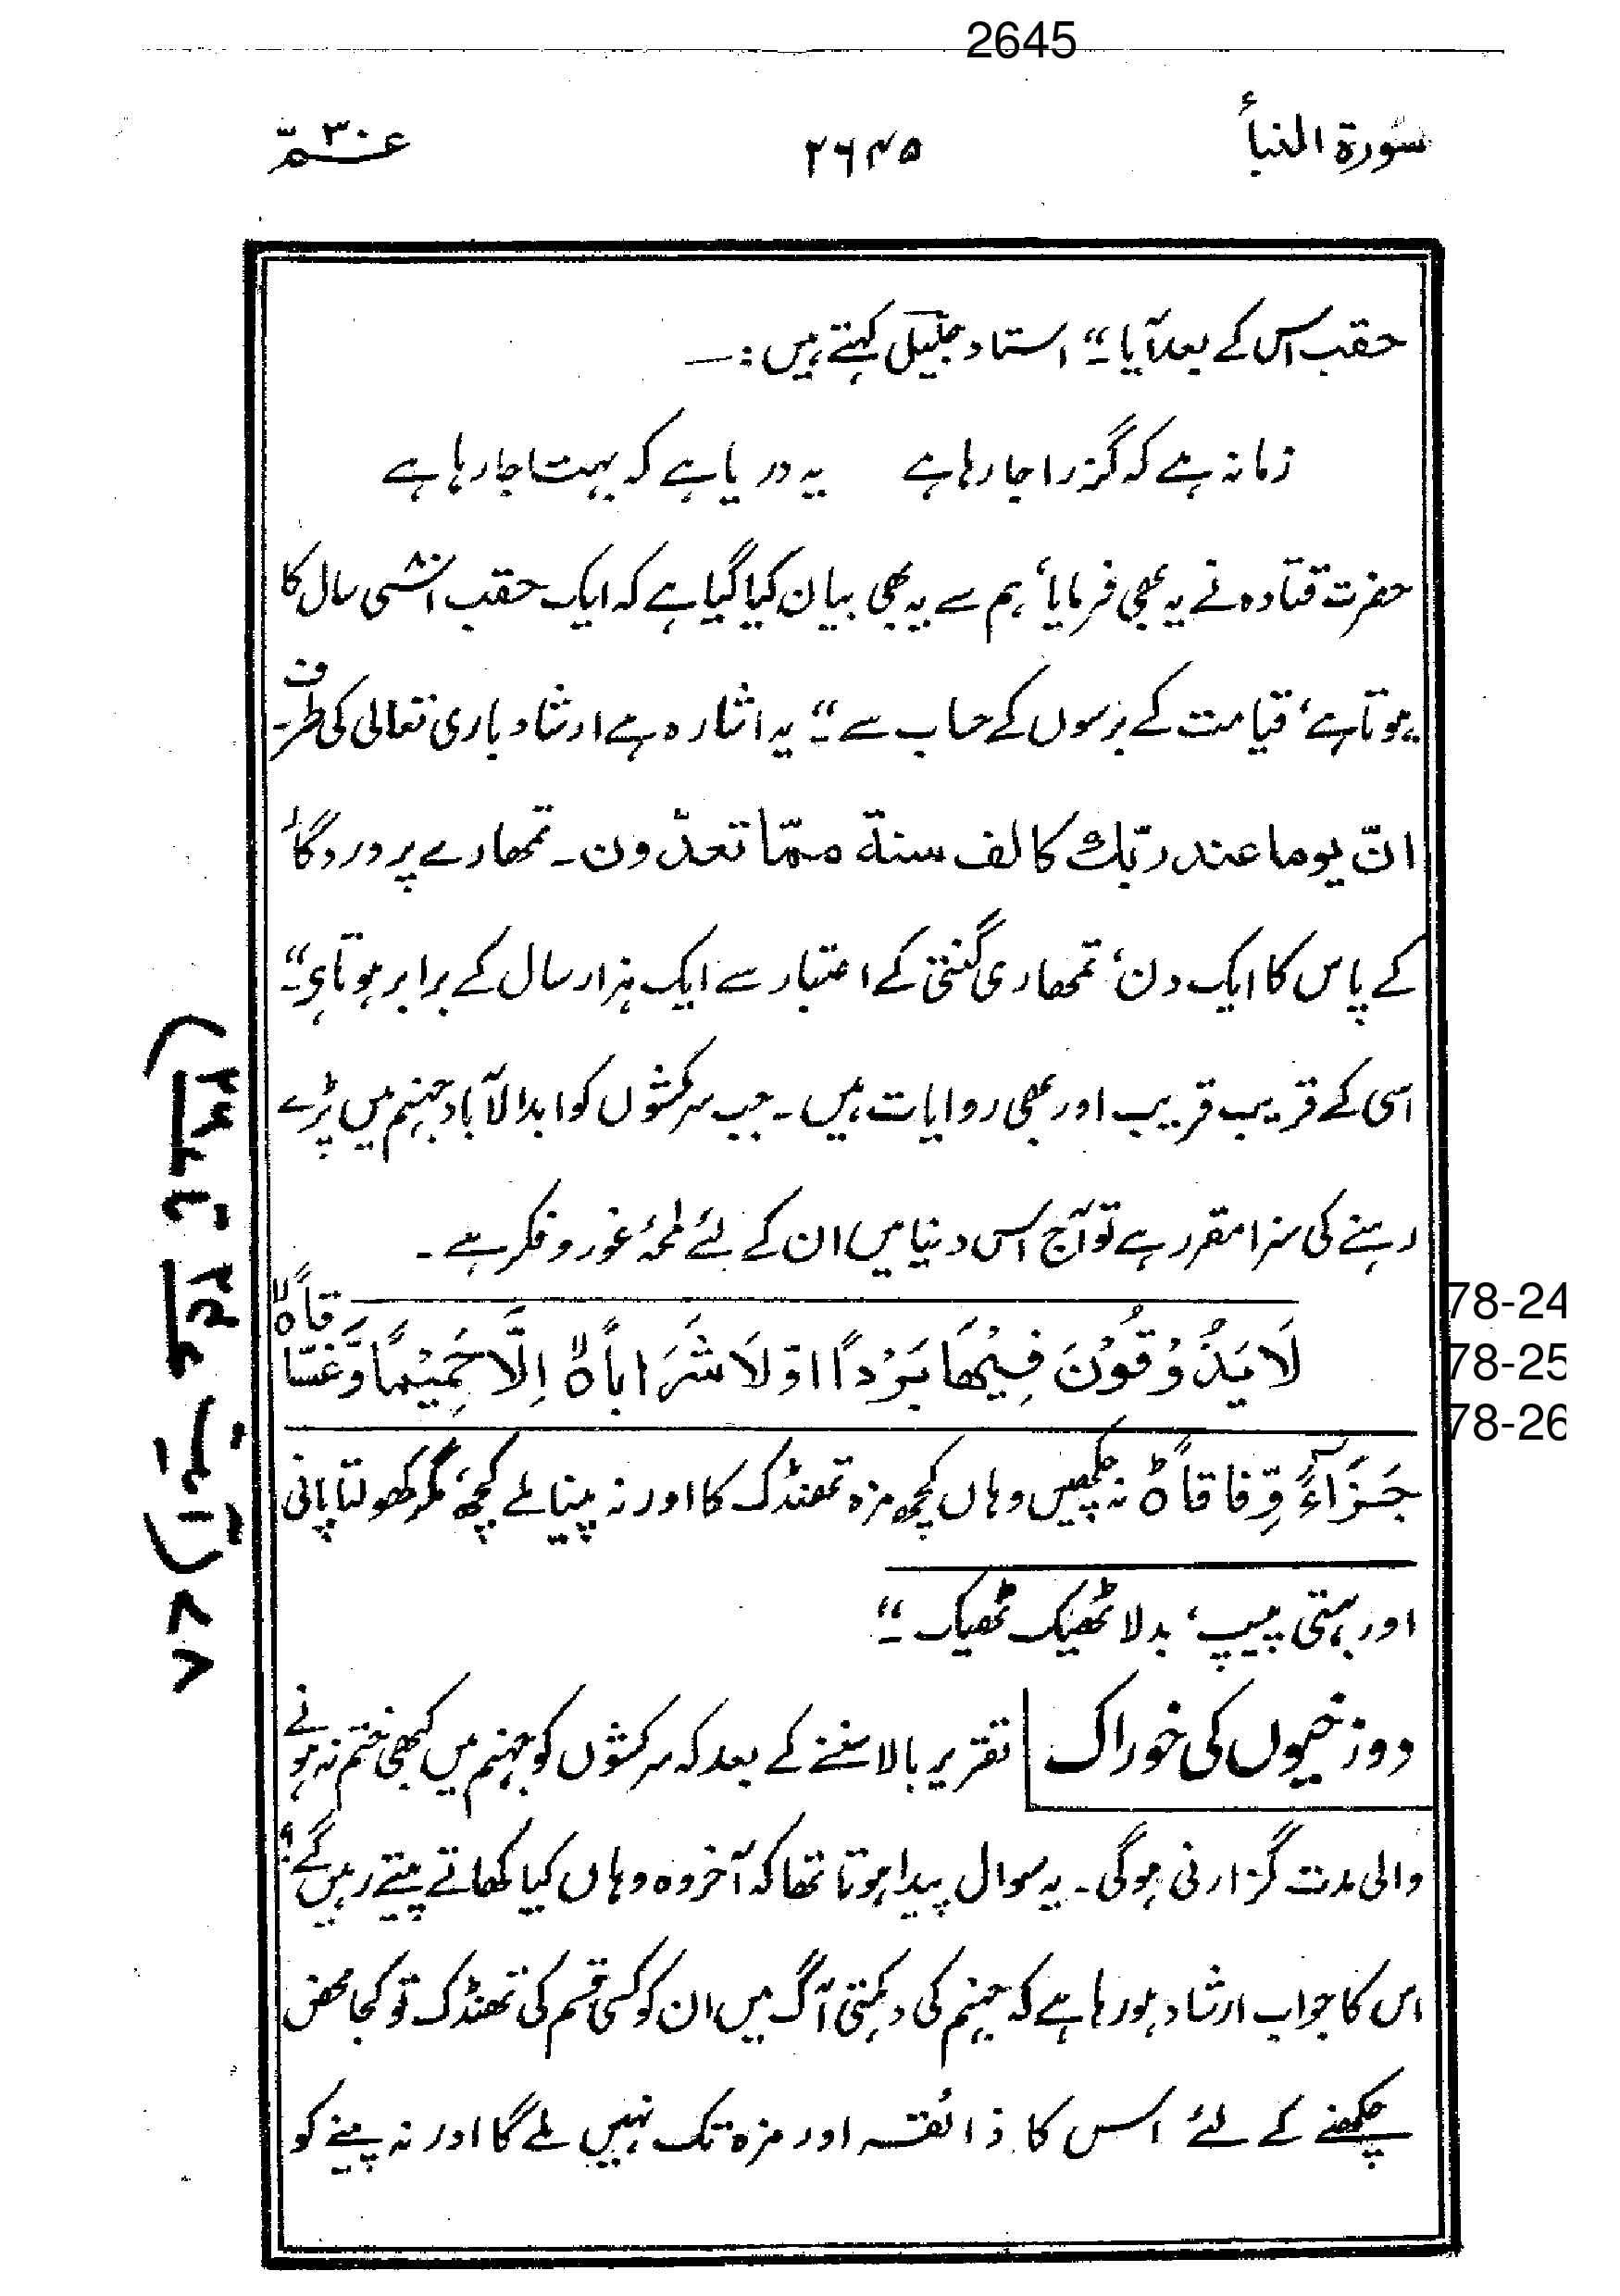 2645
سورۃ النبأ ۲۶۴۵ عـــمّ ۳۰
حقب اس کے بعد آیا۔“ استاد جلیل کہتے ہیں :—
زمانہ ہے کہ گزرا جا رہا ہے یہ دریا ہے کہ بہتا جا رہا ہے
حضرت قتادہ نے یہ بھی فرمایا، ہم سے یہ بھی بیان کیا گیا ہے کہ ایک حقب اسّی ۸۰ سال کا
ہوتا ہے، قیامت کے برسوں کے حساب سے۔“ یہ اشارہ ہے ارشاد باری تعالی کی طرف۔
انّ یوما عند ربّك کالف سنة ممّا تعدّون۔ تمھارے پروردگار
کے پاس کا ایک دن، تمھاری گنتی کے اعتبار سے ایک ہزار سال کے برابر ہوتا ہی۔“
اسی کے قریب قریب اور بھی روایات ہیں۔ جب سرکشوں کو ابدالآباد جہنم میں پڑے
رہنے کی سزا مقرر ہے تو آج اس دنیا میں ان کے لئے لمحۂ غور و فکر ہے۔
لَا یَذُوْقُوْنَ فِیْهَا بَرْدًا وَّلَا شَرَابًا ۙ اِلَّا حَمِیْمًا وَّغَسَّاقًا ۙ
78-24
78-25
78-26
جَزَآءً وِّفَاقًا ؕ نہ چکھیں وہاں کچھ مزہ تھنڈک کا اور نہ پینا ملے کچھ، مگر کھولتا پانی
اور بہتی پیپ، بدلا ٹھیک ٹھیک۔“
دوزخیوں کی خوراک تقریر بالا سننے کے بعد کہ سرکشوں کو جہنم میں کبھی ختم نہ ہونے
والی مدت گزارنی ہوگی۔ یہ سوال پیدا ہوتا تھا کہ آخر وہ وہاں کیا کھاتے پیتے رہیں گے؟
اس کا جواب ارشاد ہو رہا ہے کہ جہنم کی دہکتی آگ میں ان کو کسی قسم کی تھنڈک تو کجا محض
چکھنے کے لئے اس کا ذائقہ اور مزہ تک نہیں ملے گا اور نہ پینے کو